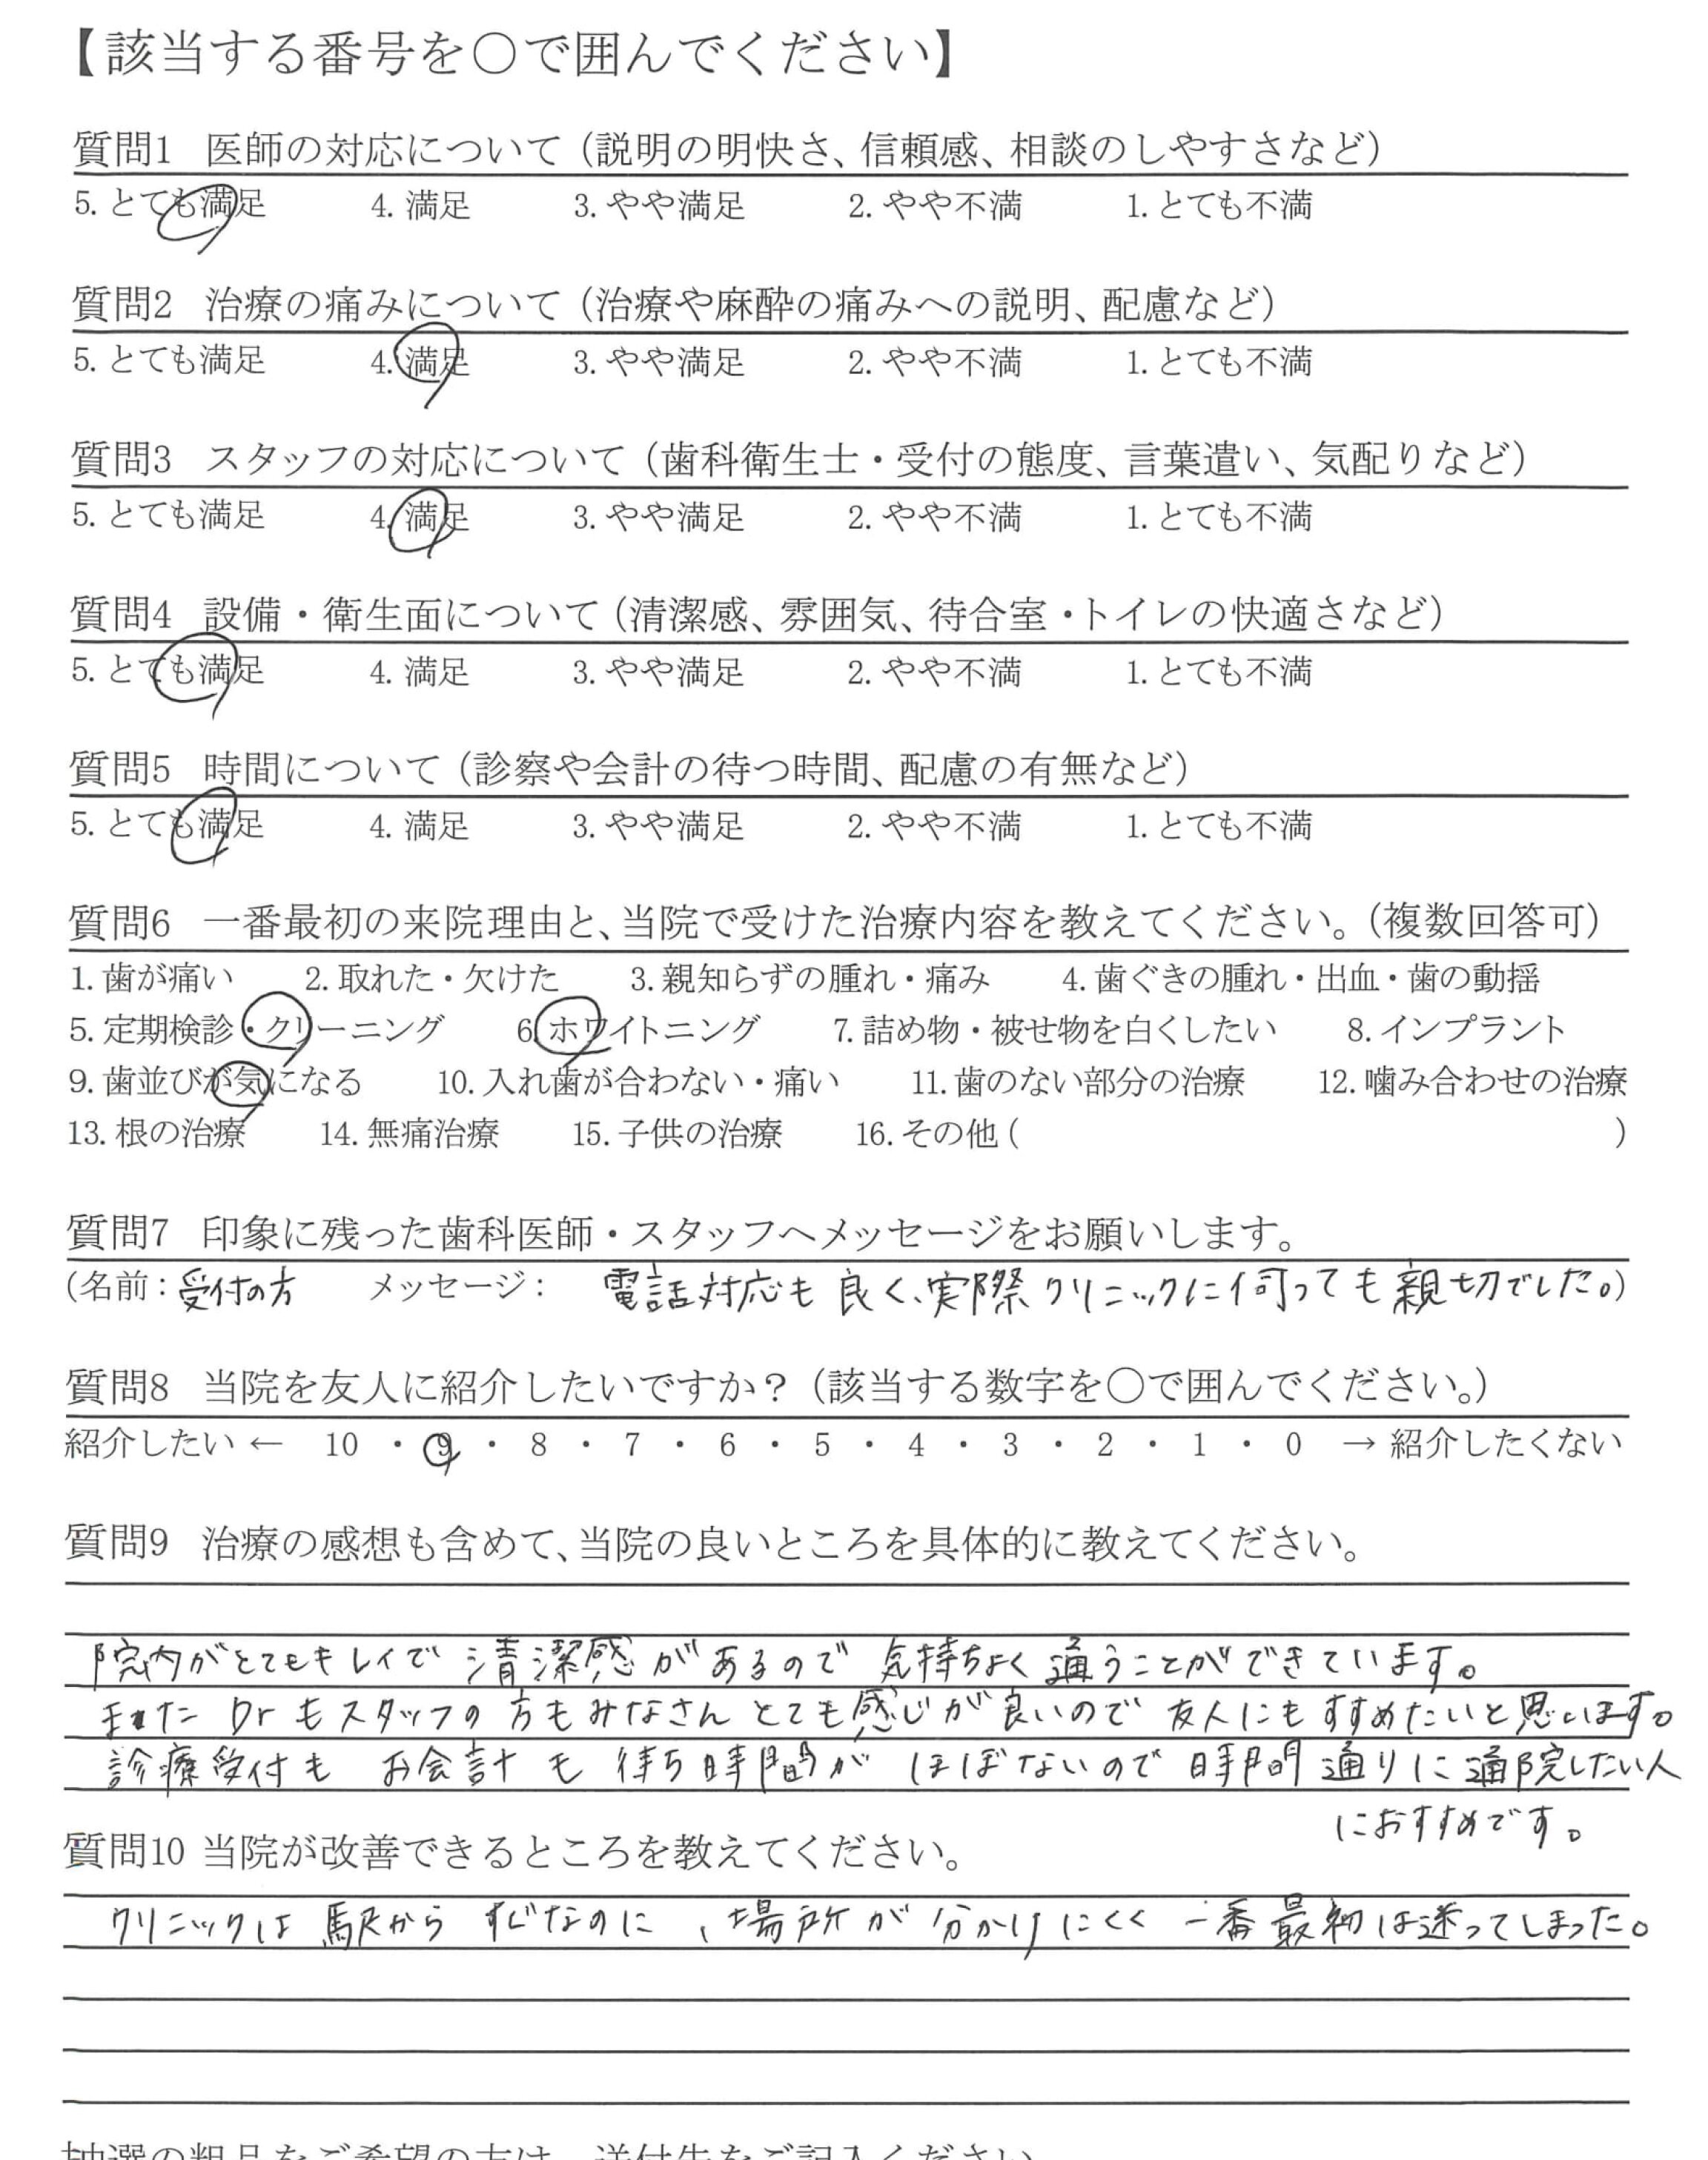 【該当する番号を〇で囲んでください】
質問1 医師の対応について（説明の明快さ、信頼感、相談のしやすさなど）
5. とても満足 4. 満足 3. やや満足 2. やや不満 1. とても不満
質問2 治療の痛みについて（治療や麻酔の痛みへの説明、配慮など）
5. とても満足 4. 満足 3. やや満足 2. やや不満 1. とても不満
質問3 スタッフの対応について（歯科衛生士・受付の態度、言葉遣い、気配りなど）
5. とても満足 4. 満足 3. やや満足 2. やや不満 1. とても不満
質問4 設備・衛生面について（清潔感、雰囲気、待合室・トイレの快適さなど）
5. とても満足 4. 満足 3. やや満足 2. やや不満 1. とても不満
質問5 時間について（診察や会計の待つ時間、配慮の有無など）
5. とても満足 4. 満足 3. やや満足 2. やや不満 1. とても不満
質問6 一番最初の来院理由と、当院で受けた治療内容を教えてください。（複数回答可）
1. 歯が痛い 2. 取れた・欠けた 3. 親知らずの腫れ・痛み 4. 歯ぐきの腫れ・出血・歯の動揺
5. 定期検診・クリーニング 6. ホワイトニング 7. 詰め物・被せ物を白くしたい 8. インプラント
9. 歯並びが気になる 10. 入れ歯が合わない・痛い 11. 歯のない部分の治療 12. 噛み合わせの治療
13. 根の治療 14. 無痛治療 15. 子供の治療 16. その他（ ）
質問7 印象に残った歯科医師・スタッフへメッセージをお願いします。
（名前：受付の方 メッセージ： 電話対応も良く、実際クリニックに伺っても親切でした。）
質問8 当院を友人に紹介したいですか？（該当する数字を〇で囲んでください。）
紹介したい ← 10 ・ 9 ・ 8 ・ 7 ・ 6 ・ 5 ・ 4 ・ 3 ・ 2 ・ 1 ・ 0 → 紹介したくない
質問9 治療の感想も含めて、当院の良いところを具体的に教えてください。
院内がとてもキレイで清潔感があるので気持ちよく通うことができています。
またDrもスタッフの方もみなさんとても感じが良いので友人にもすすめたいと思います。
診療受付も お会計も 待ち時間が ほぼないので時間通りに通院したい人
におすすめです。
質問10 当院が改善できるところを教えてください。
クリニックは駅からすぐなのに、場所が分かりにくく一番最初は迷ってしまった。
抽選の粗品をご希望の方は、送付先をご記入ください